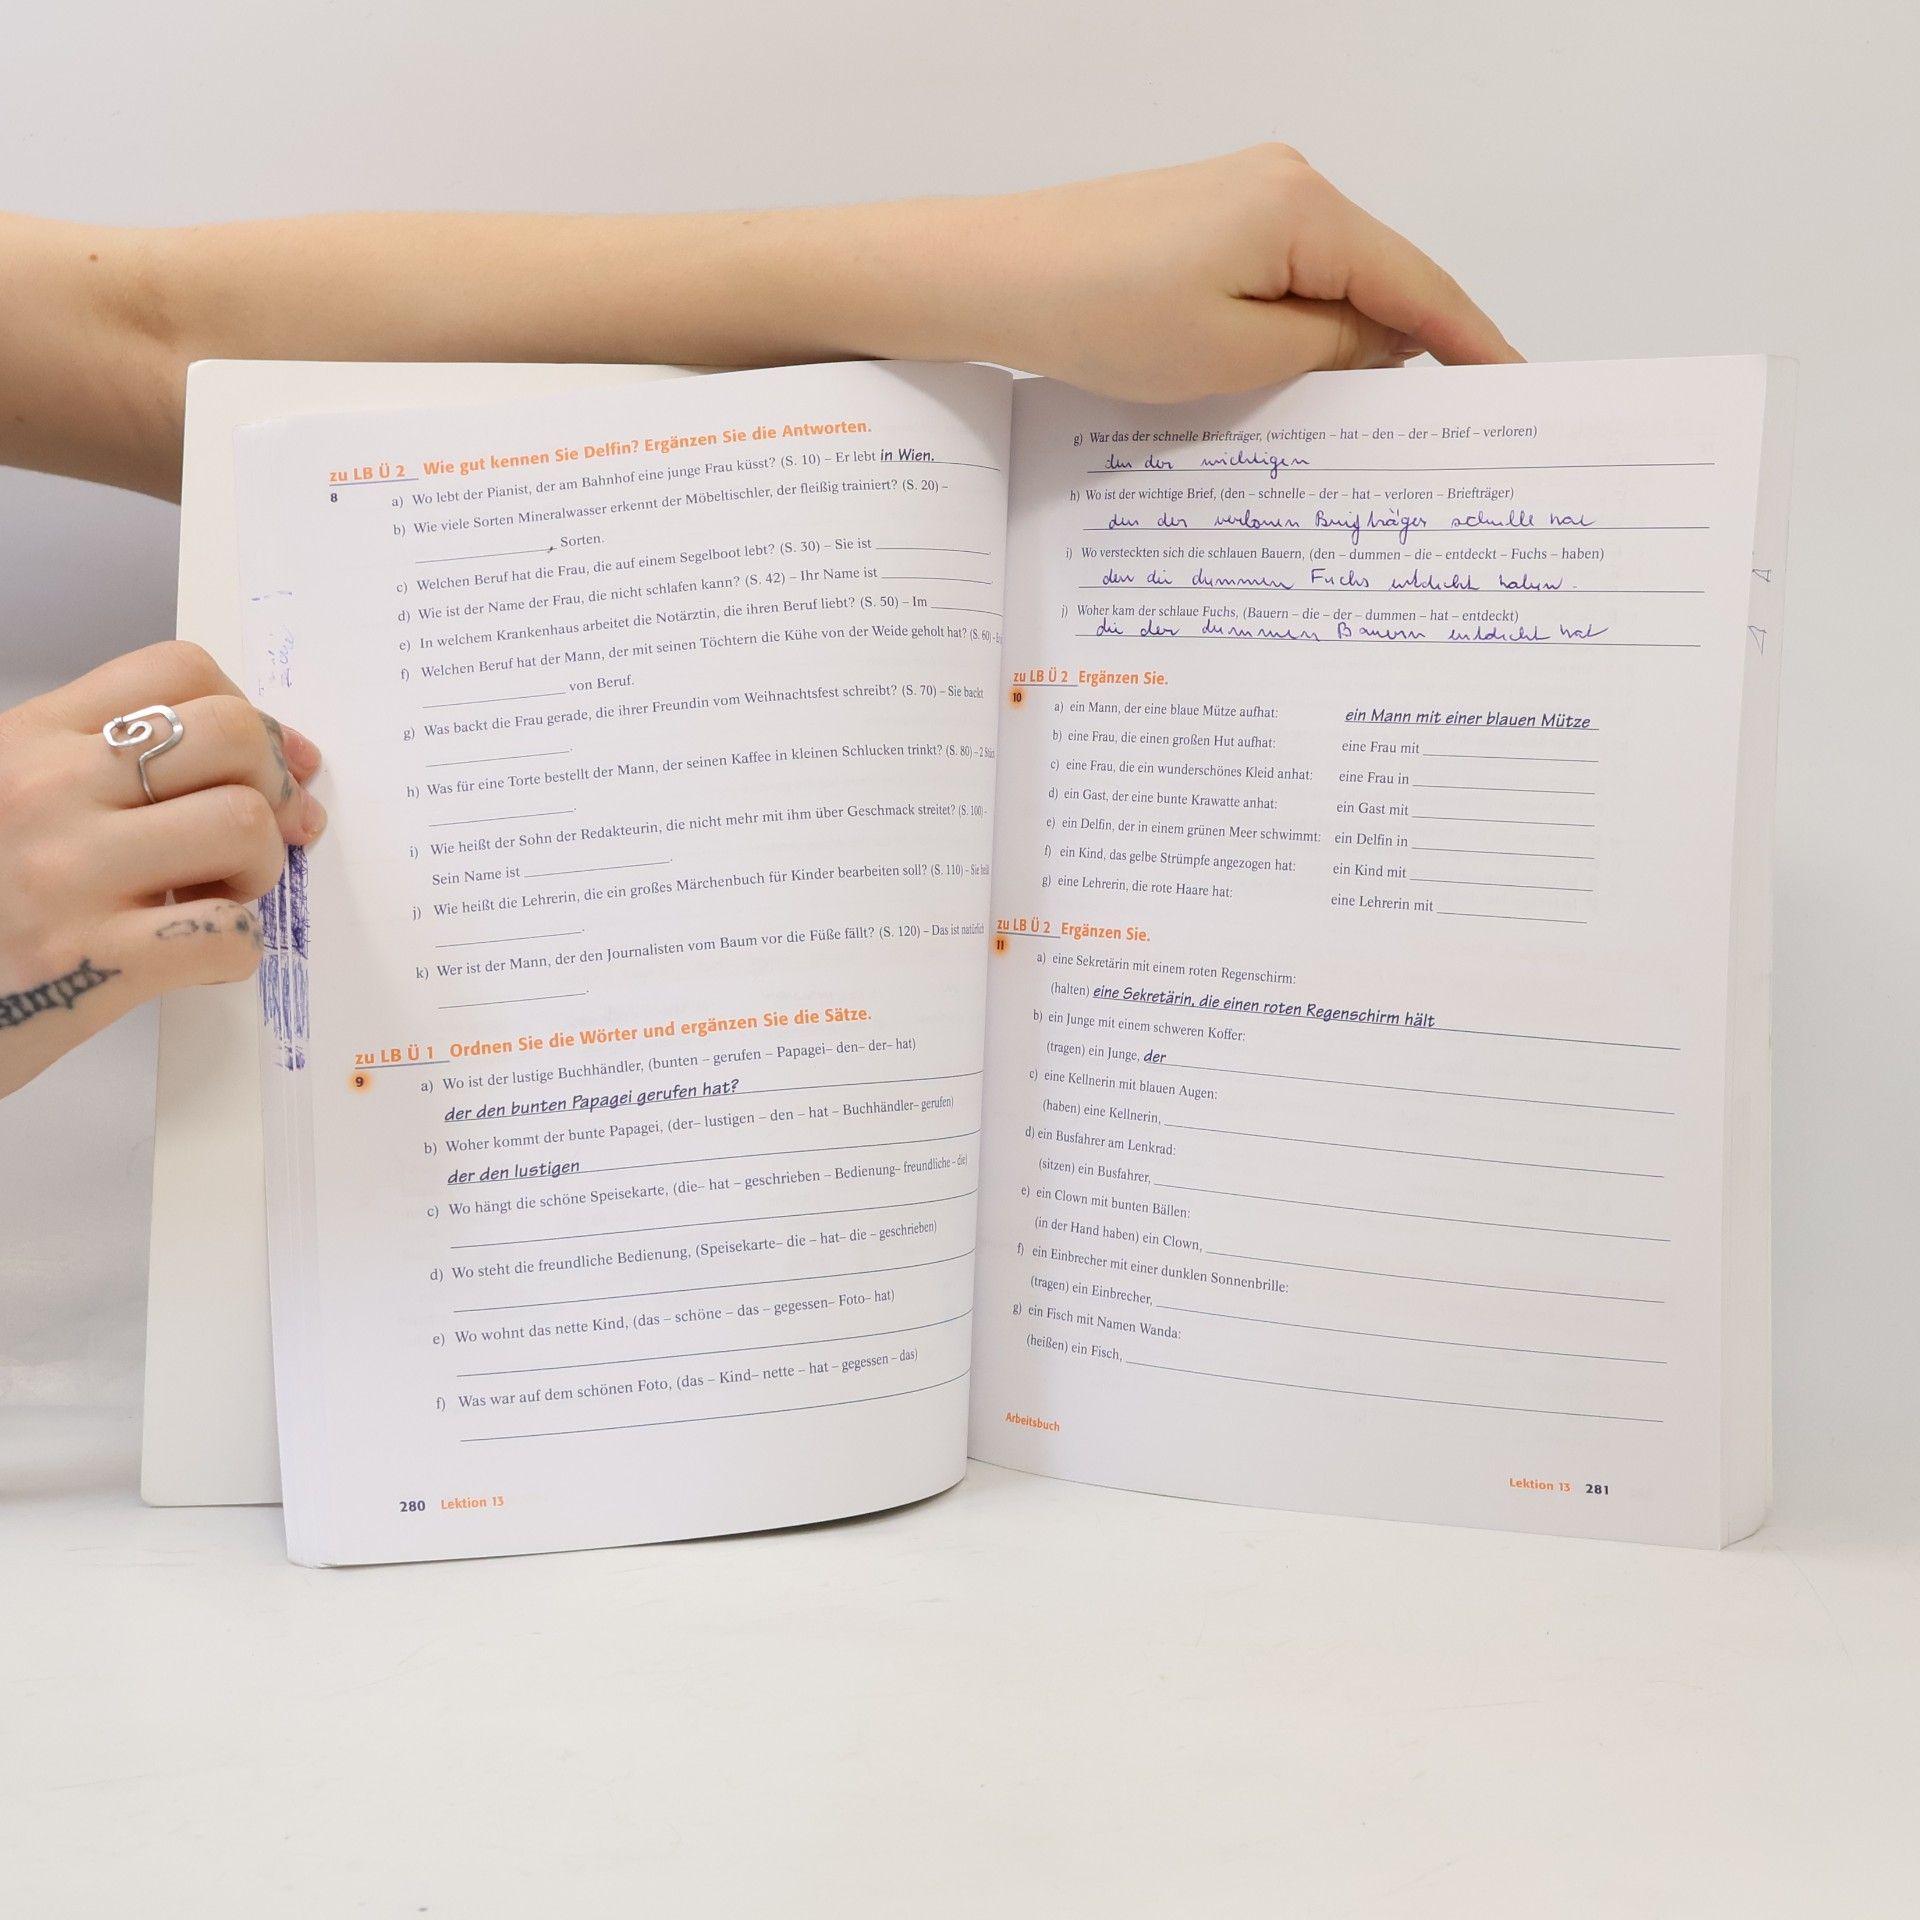 zu LB Ü 2 Wie gut kennen Sie Delfin? Ergänzen Sie die Antworten.
8
a) Wo lebt der Pianist, der am Bahnhof eine junge Frau küsst? (S. 10) – Er lebt in Wien.
b) Wie viele Sorten Mineralwasser erkennt der Möbeltischler, der fleißig trainiert? (S. 20) –
Sorten.
c) Welchen Beruf hat die Frau, die auf einem Segelboot lebt? (S. 30) – Sie ist
d) Wie ist der Name der Frau, die nicht schlafen kann? (S. 42) – Ihr Name ist
e) In welchem Krankenhaus arbeitet die Notärztin, die ihren Beruf liebt? (S. 50) – Im
f) Welchen Beruf hat der Mann, der mit seinen Töchtern die Kühe von der Weide geholt hat? (S. 60) –
von Beruf.
g) Was backt die Frau gerade, die ihrer Freundin vom Weihnachtsfest schreibt? (S. 70) – Sie backt
h) Was für eine Torte bestellt der Mann, der seinen Kaffee in kleinen Schlucken trinkt? (S. 80) – 2
i) Wie heißt der Sohn der Redakteurin, die nicht mehr mit ihm über Geschmack streitet? (S. 100) –
Sein Name ist
j) Wie heißt die Lehrerin, die ein großes Märchenbuch für Kinder bearbeiten soll? (S. 110) – Sie
k) Wer ist der Mann, der den Journalisten vom Baum vor die Füße fällt? (S. 120) – Das ist natürlich
zu LB Ü 1 Ordnen Sie die Wörter und ergänzen Sie die Sätze.
9
a) Wo ist der lustige Buchhändler, (bunten – gerufen – Papagei– den– der– hat)
der den bunten Papagei gerufen hat?
b) Woher kommt der bunte Papagei, (der– lustigen – den – hat – Buchhändler– gerufen)
der den lustigen
c) Wo hängt die schöne Speisekarte, (die– hat – geschrieben – Bedienung– freundliche – die)
d) Wo steht die freundliche Bedienung, (Speisekarte– die – hat– die – geschrieben)
e) Wo wohnt das nette Kind, (das – schöne – das – gegessen– Foto– hat)
f) Was war auf dem schönen Foto, (das – Kind– nette – hat – gegessen – das)
280 Lektion 13
g) War das der schnelle Briefträger, (wichtigen – hat – den – der – Brief – verloren)
den der wichtigen
h) Wo ist der wichtige Brief, (den – schnelle – der – hat – verloren – Briefträger)
den der verloren Briefträger schnelle hat
i) Wo versteckten sich die schlauen Bauern, (den – dummen – die – entdeckt – Fuchs – haben)
den die dummen Fuchs entdeckt haben.
j) Woher kam der schlaue Fuchs, (Bauern – die – der – dummen – hat – entdeckt)
die der dummen Bauern entdeckt hat
zu LB Ü 2 Ergänzen Sie.
10
a) ein Mann, der eine blaue Mütze aufhat: ein Mann mit einer blauen Mütze
b) eine Frau, die einen großen Hut aufhat: eine Frau mit
c) eine Frau, die ein wunderschönes Kleid anhat: eine Frau in
d) ein Gast, der eine bunte Krawatte anhat: ein Gast mit
e) ein Delfin, der in einem grünen Meer schwimmt: ein Delfin in
f) ein Kind, das gelbe Strümpfe angezogen hat: ein Kind mit
g) eine Lehrerin, die rote Haare hat: eine Lehrerin mit
zu LB Ü 2 Ergänzen Sie.
11
a) eine Sekretärin mit einem roten Regenschirm:
(halten) eine Sekretärin, die einen roten Regenschirm hält
b) ein Junge mit einem schweren Koffer:
(tragen) ein Junge, der
c) eine Kellnerin mit blauen Augen:
(haben) eine Kellnerin,
d) ein Busfahrer am Lenkrad:
(sitzen) ein Busfahrer,
e) ein Clown mit bunten Bällen:
(in der Hand haben) ein Clown,
f) ein Einbrecher mit einer dunklen Sonnenbrille:
(tragen) ein Einbrecher,
g) ein Fisch mit Namen Wanda:
(heißen) ein Fisch,
Arbeitsbuch
Lektion 13 281